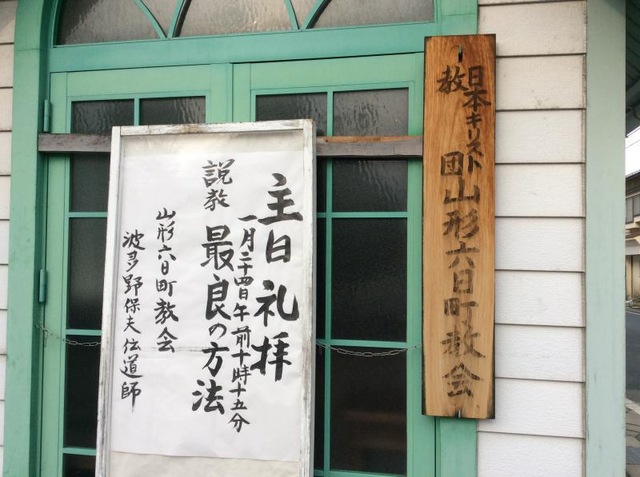 日本キリスト教団山形六日町教会
主日礼拝
一月二十四日午前十時十五分
説教 最良の方法
山形六日町教会
波多野保夫伝道師